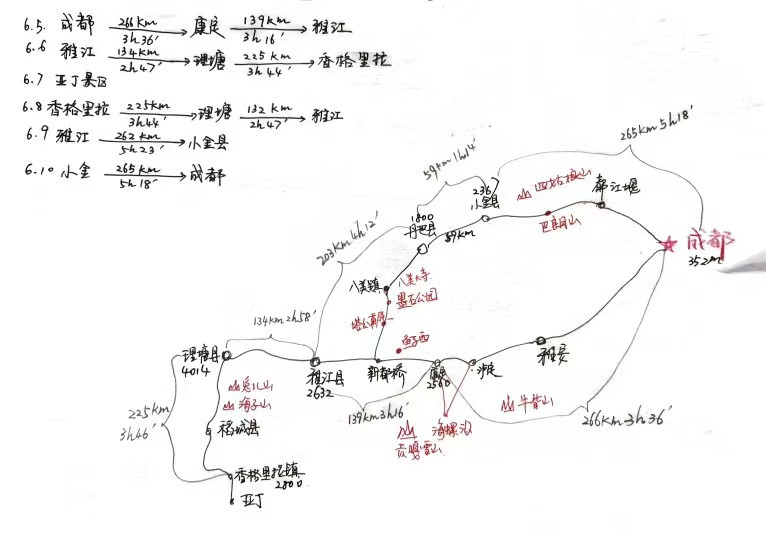 6.5. 成都 266km 3h36′ → 康定 139km 3h16′ → 雅江
6.6 雅江 134km 2h47′ → 理塘 225km 3h44′ → 香格里拉
6.7 亚丁景区
6.8 香格里拉 225km 3h44′ → 理塘 132km 2h47′ → 雅江
6.9 雅江 262km 5h23′ → 小金县
6.10 小金 265km 5h18′ → 成都
265km 5h18′
59km 1h14′
四姑娘山
都江堰
236
小金县
1800
丹巴县
59km
巴朗山
成都
352m
203km 4h12′
八美镇
八美大寺
墨石公园
塔公草原
鱼子西
134km 2h58′
理塘县
4014
雅江县
2632
新都桥
康定
2560
泸定
雅安
兔儿山
海子山
139km 3h16′
牛背山
266km 3h36′
225km
3h46′
稻城县
贡嘎雪山
海螺沟
香格里拉镇
2800
亚丁